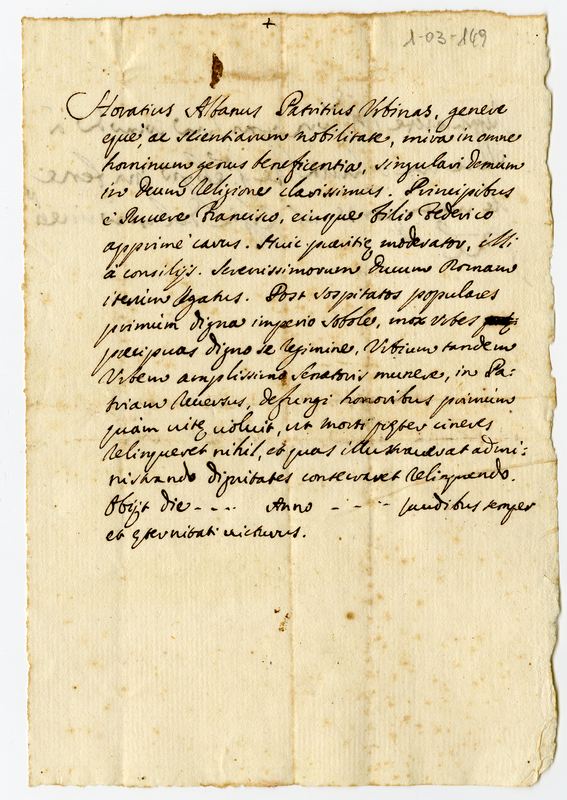 +
1-03-149
Horatius Albanus Patritius Urbinas, genere
eque, ac scientiarum nobilitate, mira in omne
hominum genus beneficentia, singulari demum
in Deum religione clarissimus. Principibus
è Ruuere Francisco, eiusque filio Federico
apprimè carus. Huic pueritię moderator, illi
à consilijs. Serenissimorum Ducum Romam
iterùm legatus. Post sospitatos populares
primùm digna imperio sobole, mox Urbes
pręcipuas digno se regimine, Urbium tandem
Urbem amplissimo Senatoris munere, in Pa-
triam reuersus, defungi honoribus primùm
quàm uitę uoluit, ut morti pręter cineres
relinqueret nihil, et quas illustrauerat admi-
nistrando dignitates conseruaret relinquendo.
Obijt die - - - - Anno - - - - laudibus semper
et ęternitati uicturus.